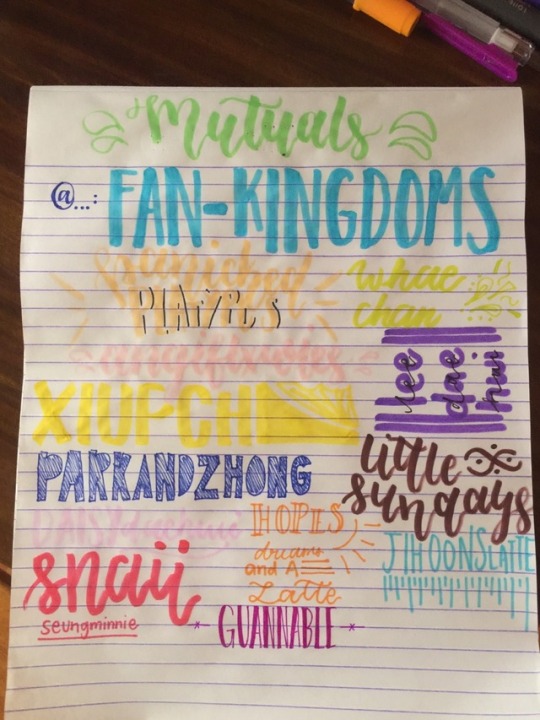 Mutuals
@...: FAN-KINGDOMS
panicked
PLATYPUS
whae
chan
lee
dae
hwi
XIUFCH
PARKANDZHONG
little
sundays
HOPES
dreams
and A
Latte
JIHOONSLATTE
snaii
seungminnie
GUANNABLE